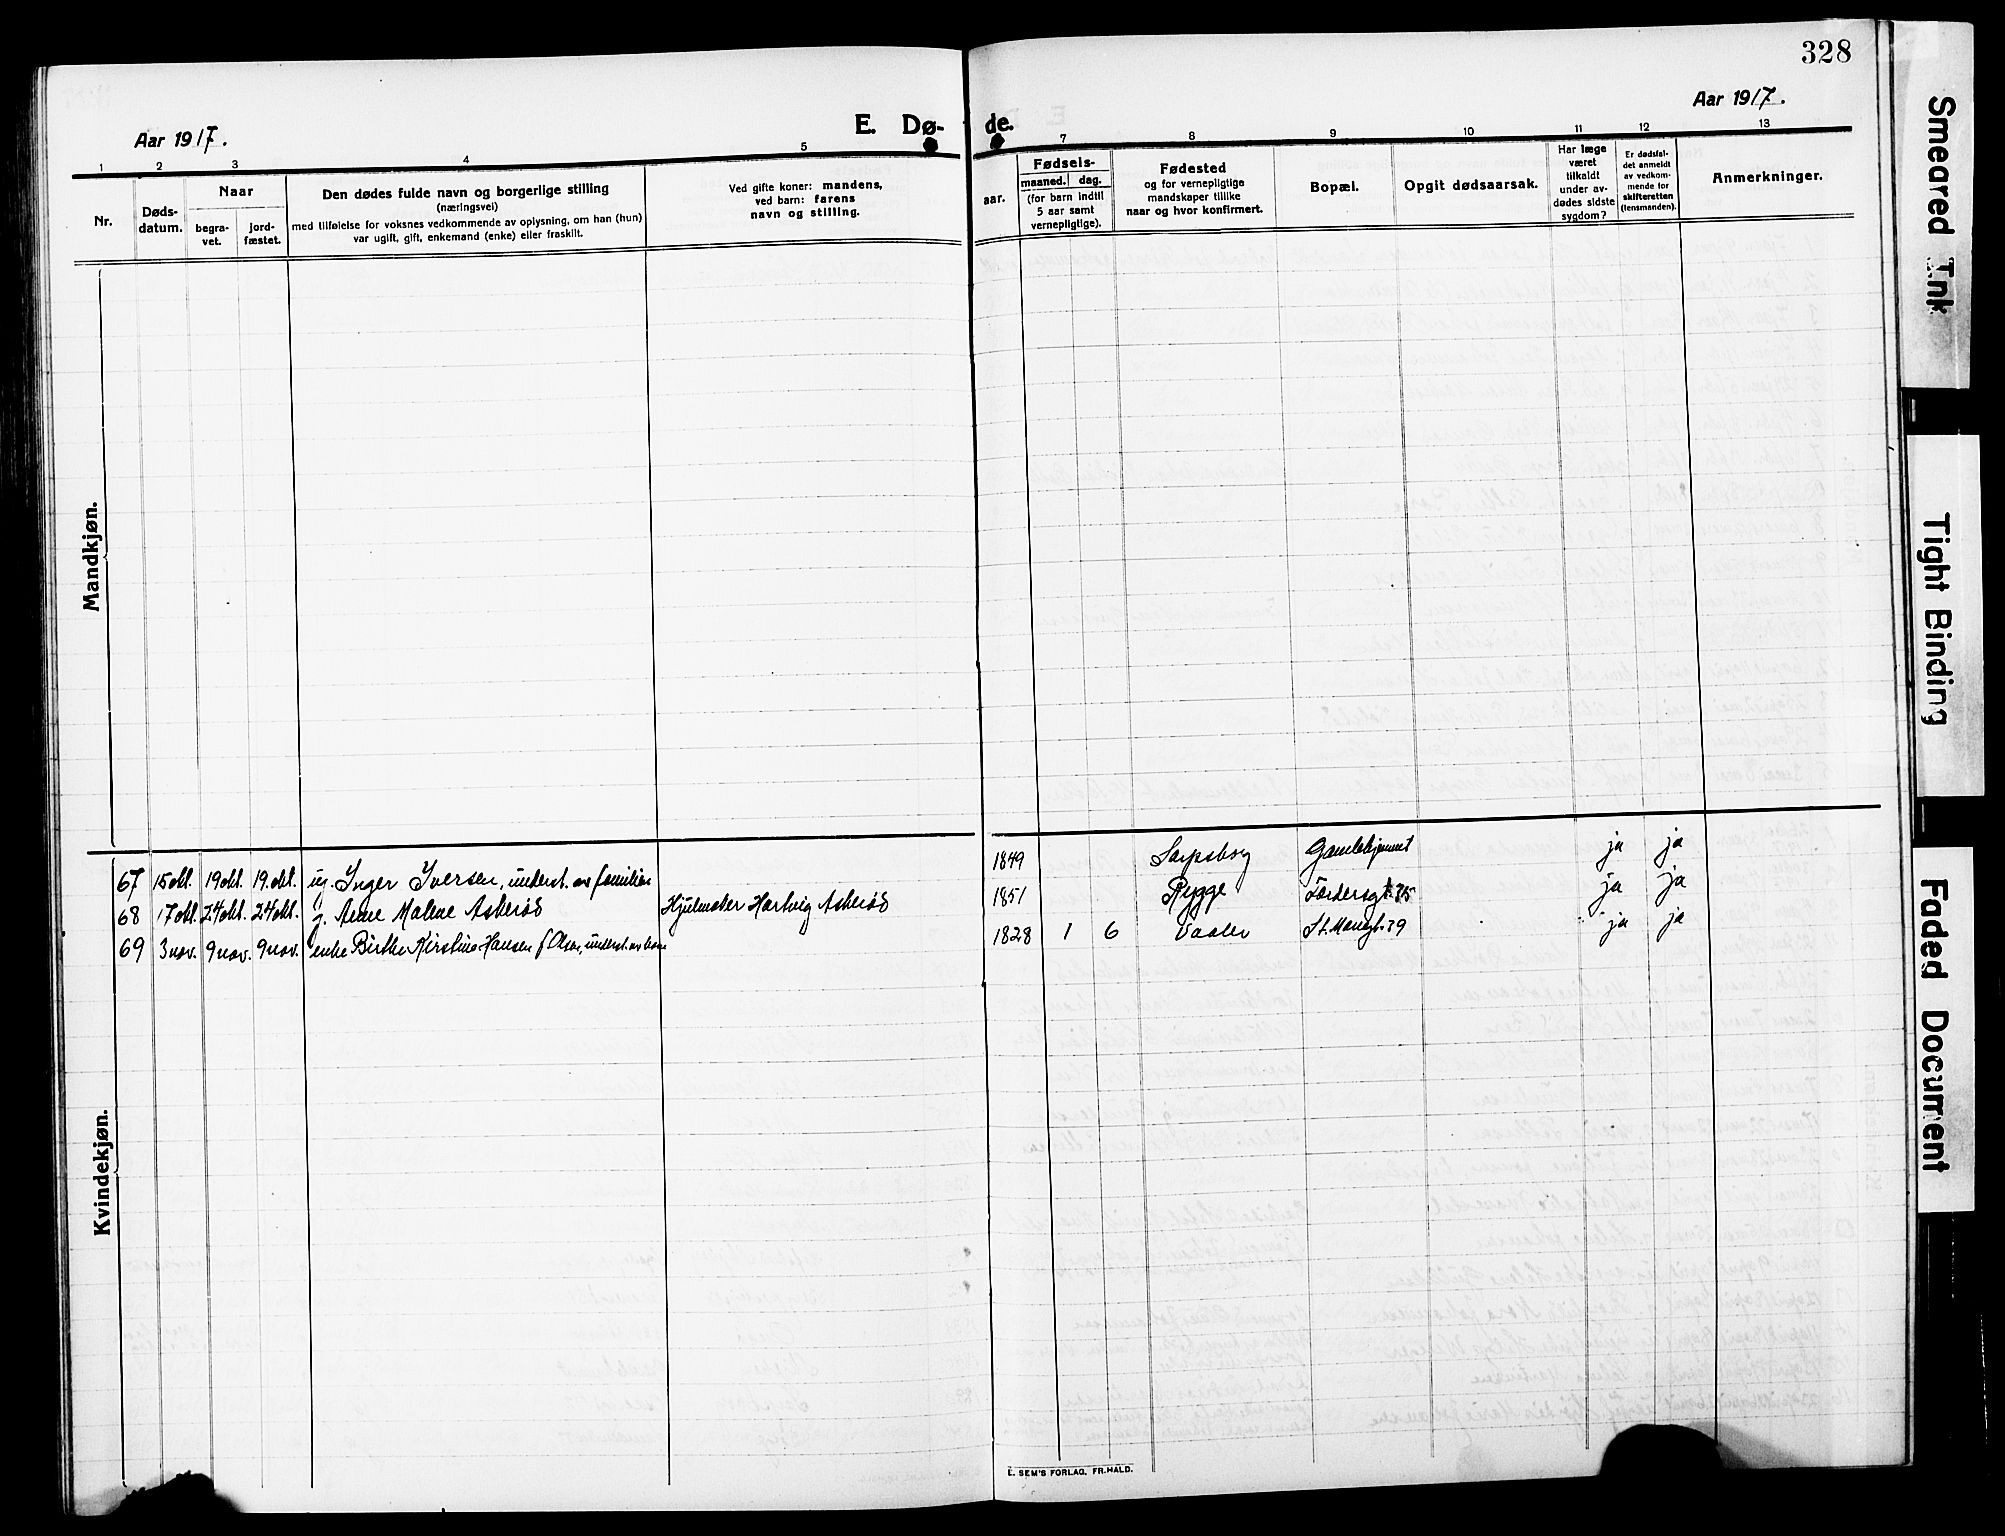 328
Aar 1917.
E. Dø-
de.
Aar 1917.
1 2 3 4 5 7 8 9 10 11 12 13
Nr.
Døds-
datum.
Naar
begra-
vet.
jord-
fæstet.
Den dødes fulde navn og borgerlige stilling
(næringsvei)
med tilføielse for voksnes vedkommende av oplysning, om han (hun)
var ugift, gift, enkemand (enke) eller fraskilt.
Ved gifte koner: mandens,
ved barn: farens
navn og stilling.
aar.
Fødsels-
maaned. dag.
(for barn indtil
5 aar samt
vernepligtige).
Fødested
og for vernepligtige
mandskaper tillike
naar og hvor konfirmert.
Bopæl.
Opgit dødsaarsak.
Har læge
været
tilkaldt
under av-
dødes sidste
sygdom?
Er dødsfal-
det anmeldt
av vedkom-
mende for
skifteretten
(lensmanden).
Anmerkninger.
Mandkjøn.
Kvindekjøn.
67 15 okt. 19 okt. 19. okt. ug. Inger Iversen, underst. av familien 1849 Sarpsborg Gamlehjemmet ja ja
68 17 okt. 24 okt. 24 okt. g. Anne Malene Askerød Hjulmaker Hartvig Askerød 1851 Rygge ja ja
69 3 nov. 9 nov. 9 nov. enke Birthe Kirstine Hansen f. Olsen, underst. av 1828 1 6 Vaaler St. Mariegt. 39 ja ja
E. SEM'S FORLAG, FR.HALD.
Smeared Ink
Tight Binding
Faded Document